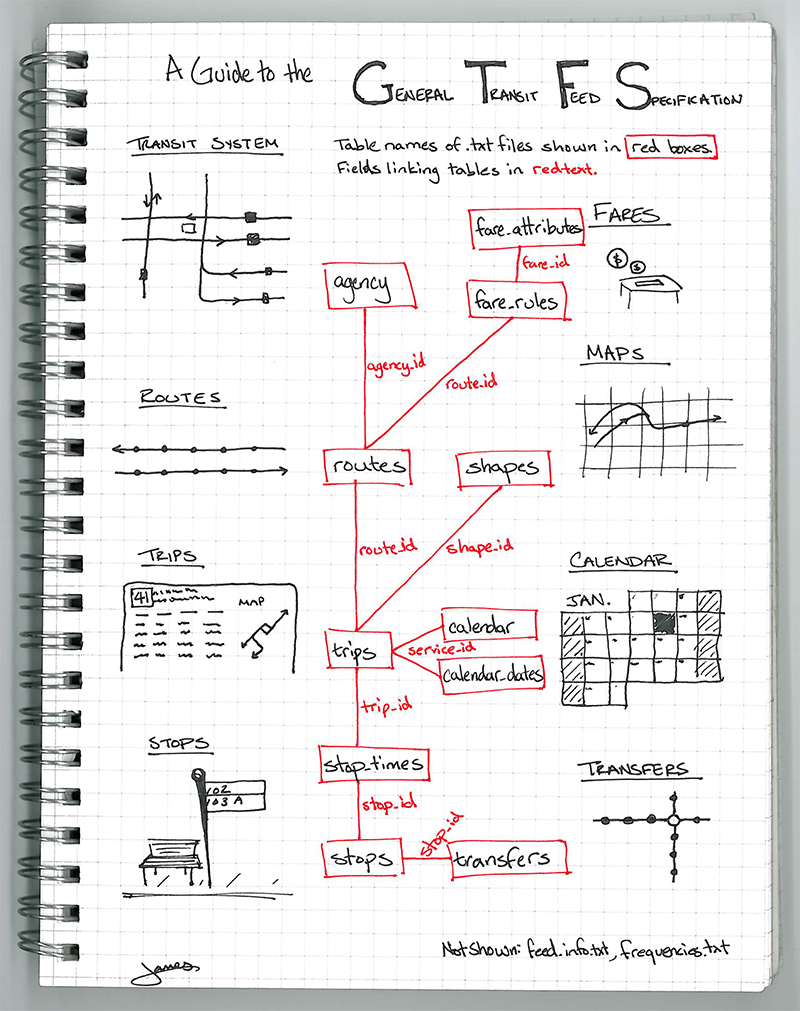 A Guide to the GENERAL TRANSIT FEED SPECIFICATION
TRANSIT SYSTEM
Table names of .txt files shown in red boxes.
Fields linking tables in red text.
FARES
fare_attributes
fare_id
$ $
agency
fare_rules
agency_id
route_id
MAPS
ROUTES
routes
shapes
route_id
shape_id
TRIPS
41
MAP
CALENDAR
JAN.
trips
calendar
service_id
calendar_dates
trip_id
STOPS
102
103 A
stop_times
stop_id
TRANSFERS
stops
stop_id
transfers
Not shown: feed_info.txt, frequencies.txt
James